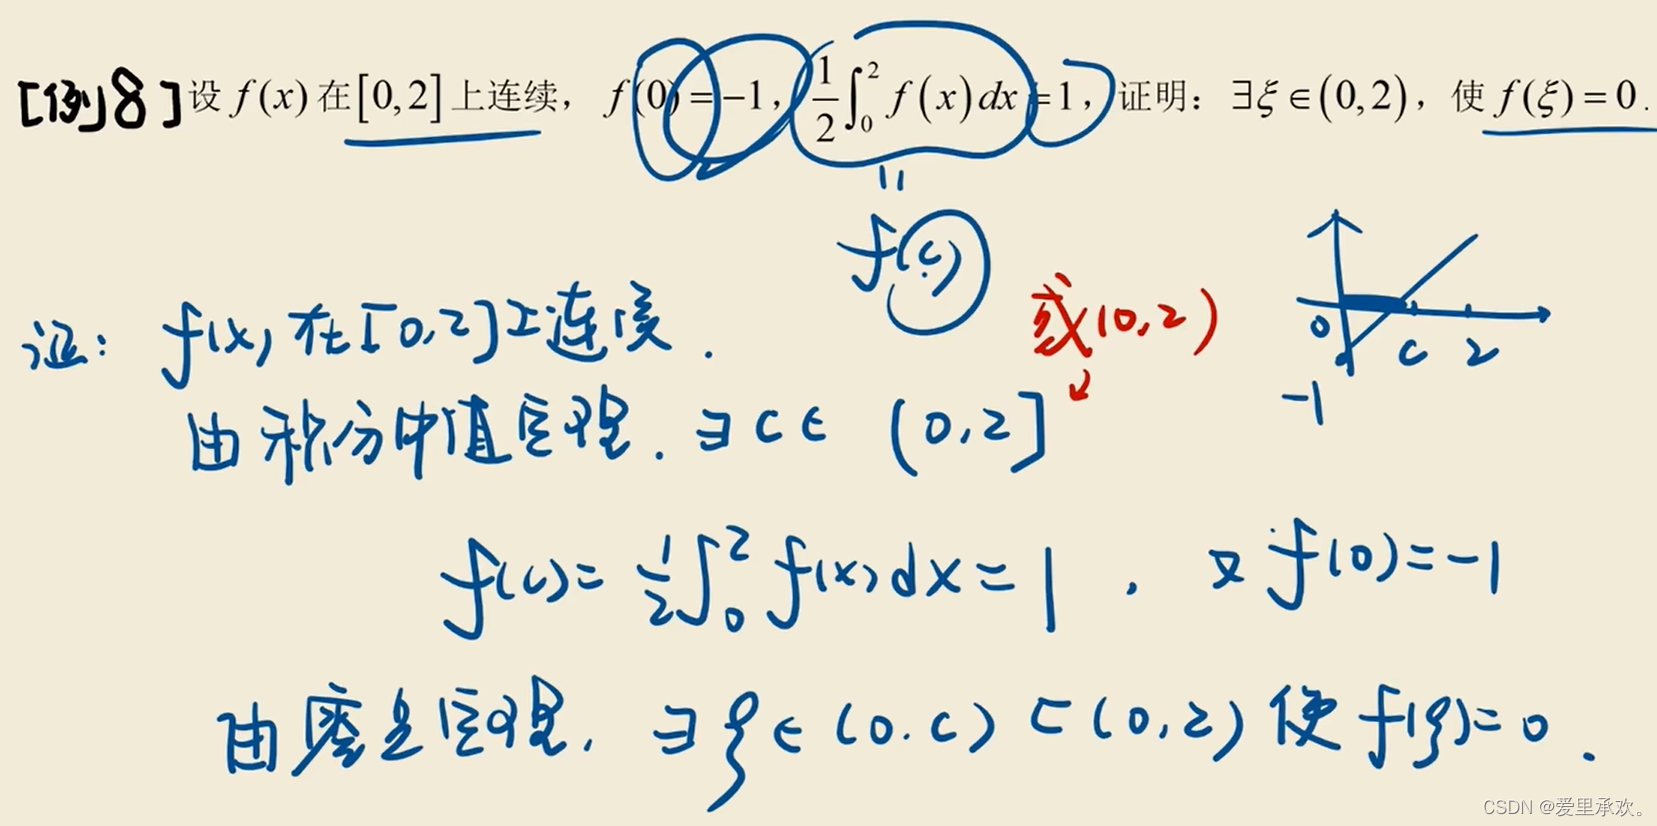 [例8]设 f(x) 在[0,2]上连续，f(0)=−1，1/2∫₀² f(x)dx=1，证明：∃ξ∈(0,2)，使 f(ξ)=0.
=
f(c)
证：f(x)在[0,2]上连续.
或(0,2)
0 c 2
-1
由积分中值定理.∃c∈(0,2]
f(c)=1/2∫₀² f(x)dx=1，又f(0)=-1
由零点定理，∃ξ∈(0.c)⊂(0,2)使f(ξ)=0.
CSDN @爱里承欢。